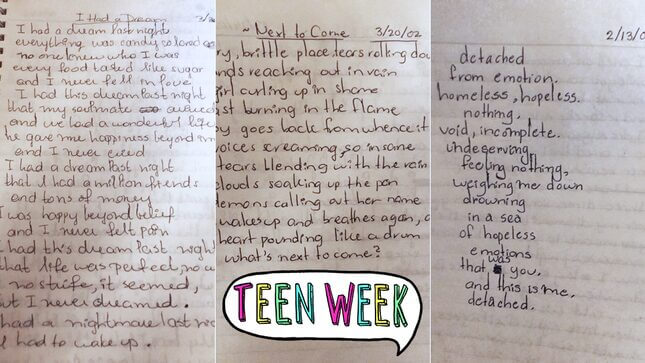 I Had a Dream
I had a dream last night
everything was candy
no one knew who I was
every food tasted like sugar
and I never fell in love
I had this dream last night
that my soulmate
and we had a wonderful life
he gave me happiness beyond
and I never cried
I had a dream last night
that I had a million friends
and tons of money
I was happy beyond belief
and I never felt pain
had this dream last nigh
that life was perfect, no
no strife, it seemed,
but I never dreamed.
had a nightmare last
I had to wake up.
~ Next to Come 3/20/02
y, brittle place, tears rolling dow
nds reaching out in vain
girl curling up in shame
ast burning in the flame
y goes back from whence it
voices screaming, so insane
tears blending with the rain
clouds soaking up the pain
demons calling out her name
wakes up and breathes again, a
heart pounding like a drum
what's next to come?
TEEN WEEK
2/13/0
detached
from emotion.
homeless, hopeless.
nothing.
void, incomplete.
undeserving,
feeling nothing,
weighing me down
drowning
in a sea
of hopeless
emotions
that was you.
and this is me,
detached.